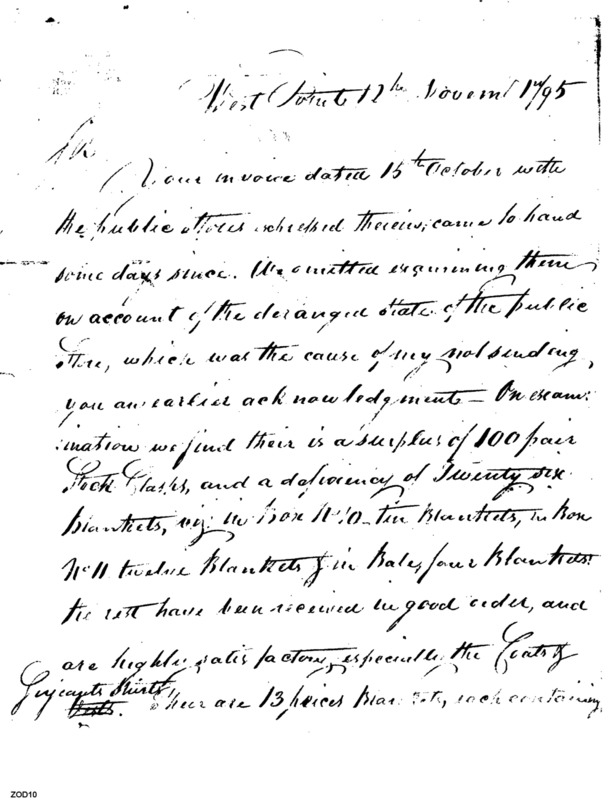 West Point 12th Novemr 1795
Sir
Your invoice dated 15th October with
the public stores expressed therein, came to hand
some days since. We omitted examining them
on account of the deranged state of the public
Store, which was the cause of my not sending
you an earlier acknowledgment — On exam:
:ination we find their is a surplus of 100 pair
Stock Clasps, and a deficiency of Twenty six
Blankets, viz in Box No 10 ten Blankets, in Box
No 11 twelve Blankets & in Bales four Blankets.
the rest have been received in good order, and
are highly satisfactory, especially the Coats &
Serjeants Shirts
Vests. There are 13 peices Blankets, each containing
ZOD10